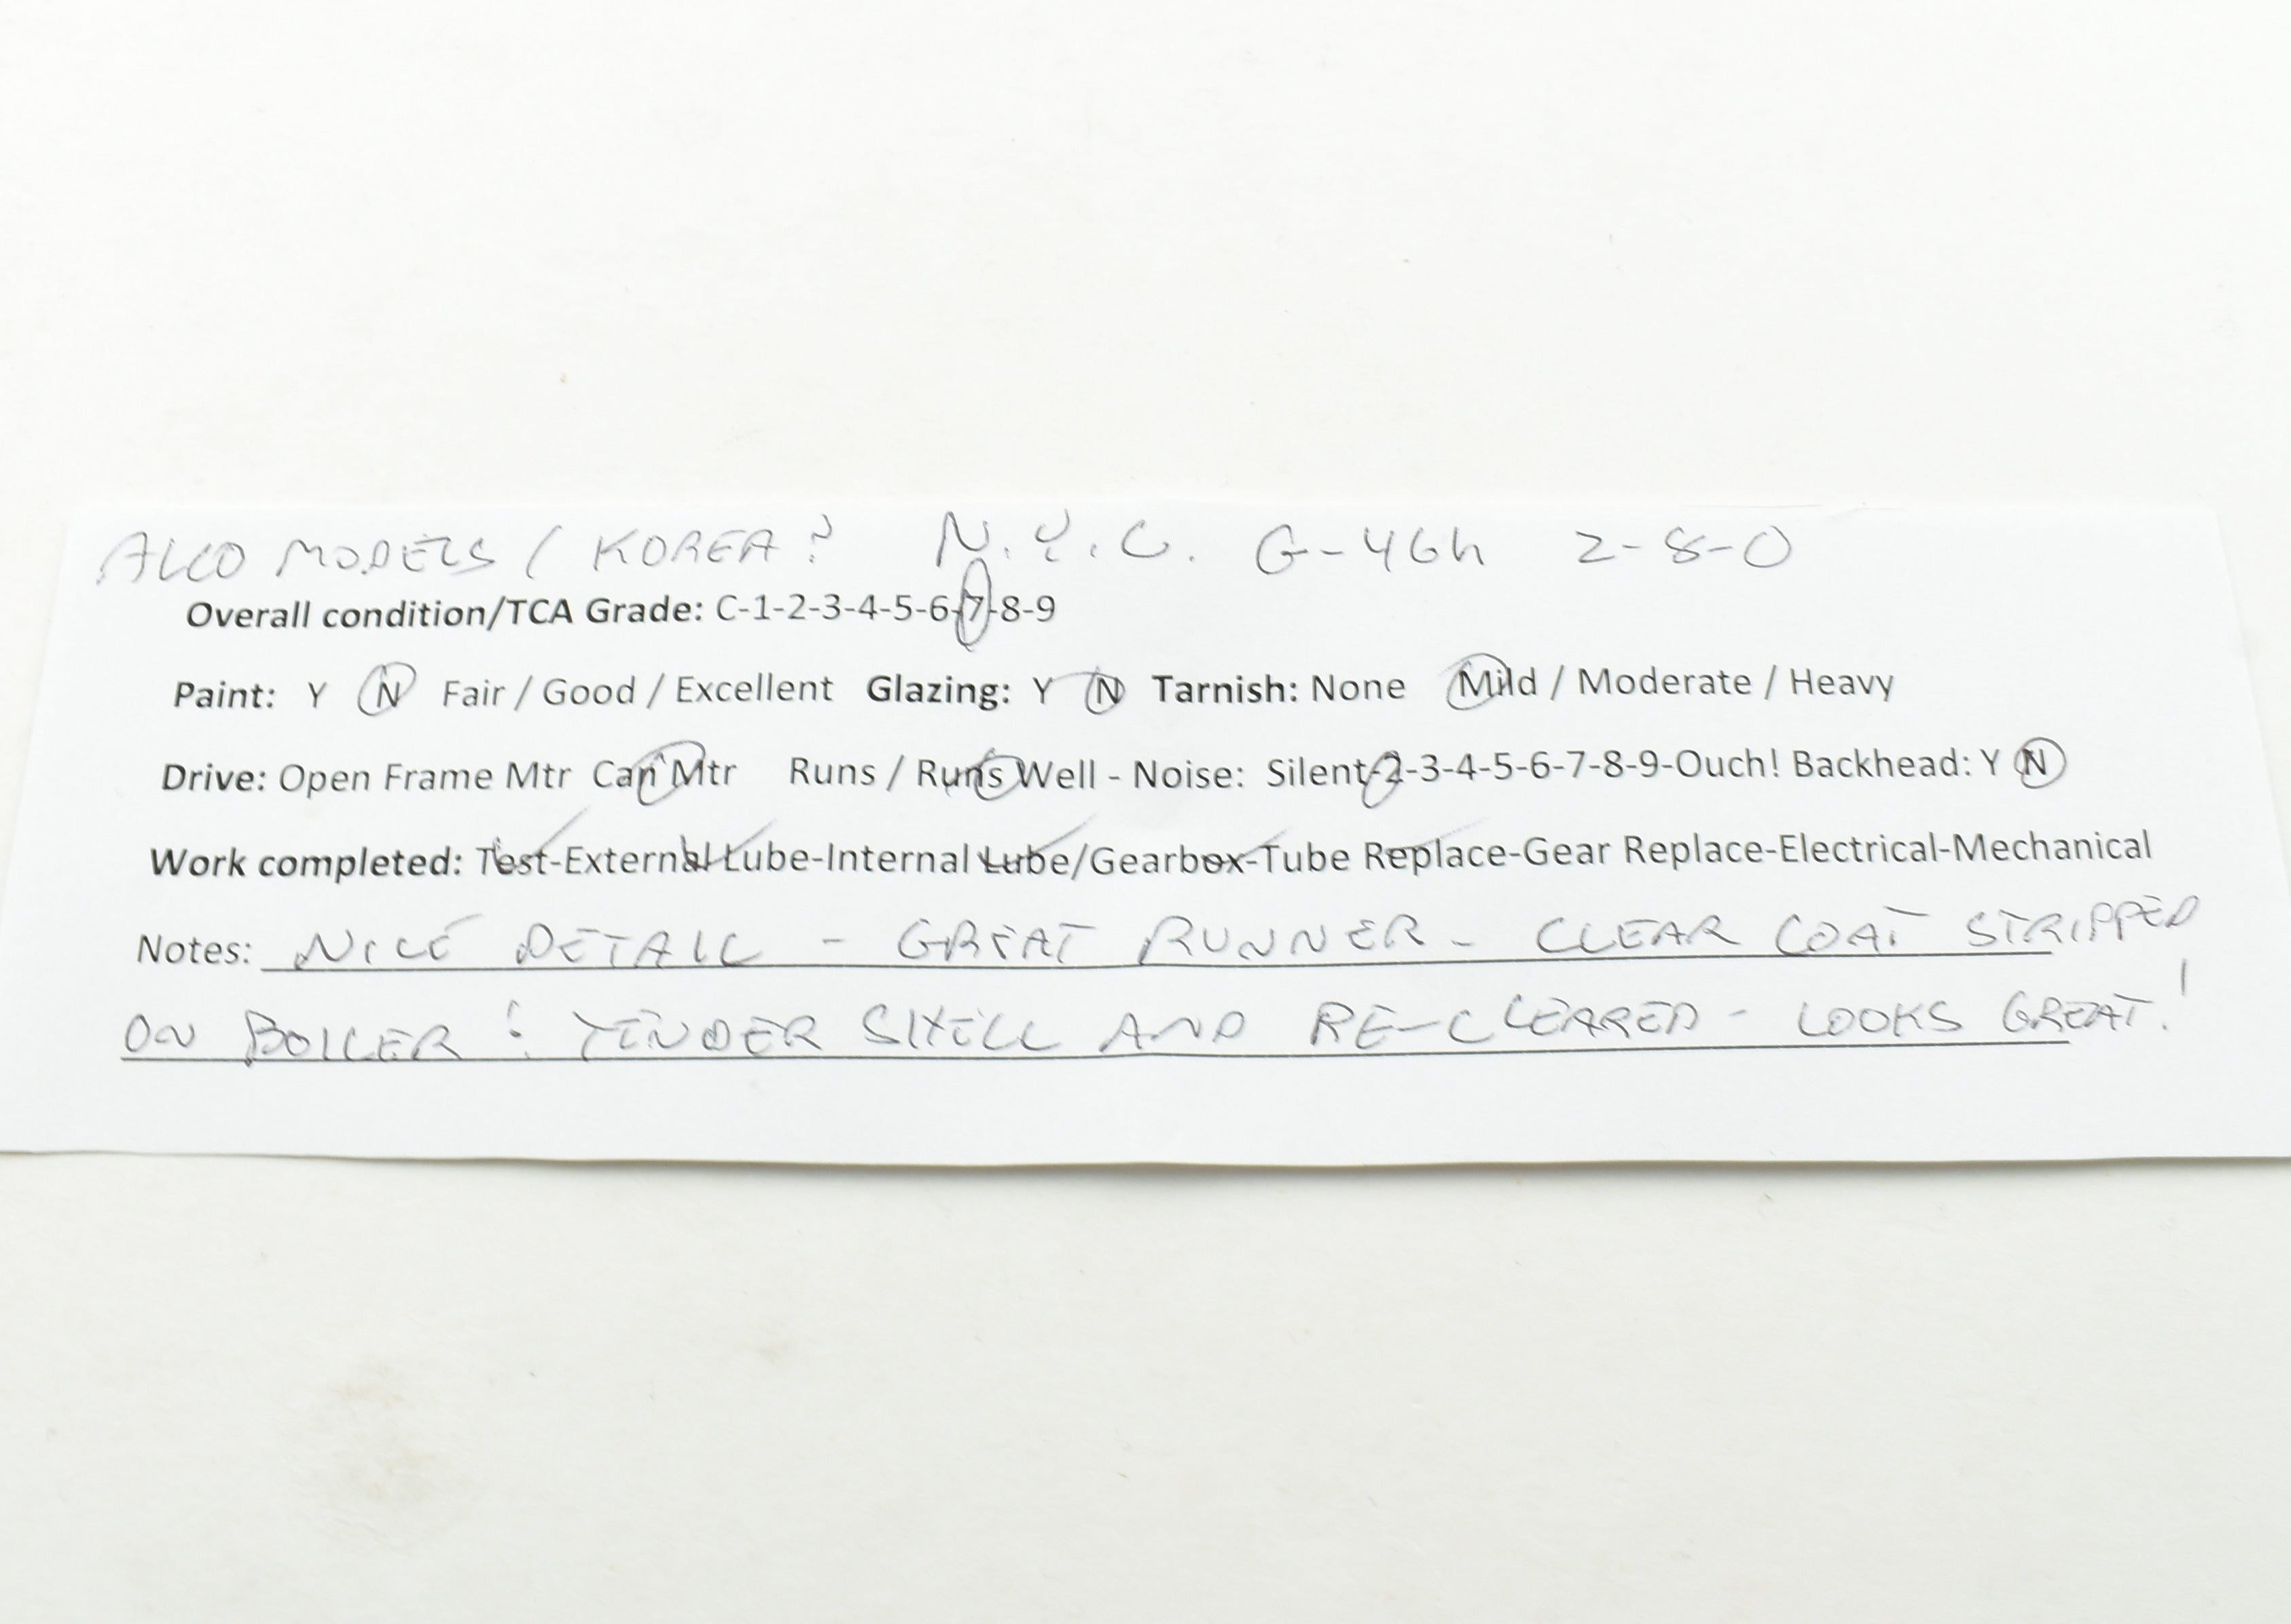 ALCO MODELS / KOREA? N.Y.C. G-46h 2-8-0
Overall condition/TCA Grade: C-1-2-3-4-5-6-7-8-9
Paint: Y N Fair / Good / Excellent Glazing: Y N Tarnish: None Mild / Moderate / Heavy
Drive: Open Frame Mtr Can Mtr Runs / Runs Well - Noise: Silent-2-3-4-5-6-7-8-9-Ouch! Backhead: Y N
Work completed: Test-External Lube-Internal Lube/Gearbox-Tube Replace-Gear Replace-Electrical-Mechanical
Notes: NICE DETAIL - GREAT RUNNER - CLEAR COAT STRIPPED
ON BOILER & TENDER SHELL AND RE-CLEARED - LOOKS GREAT!